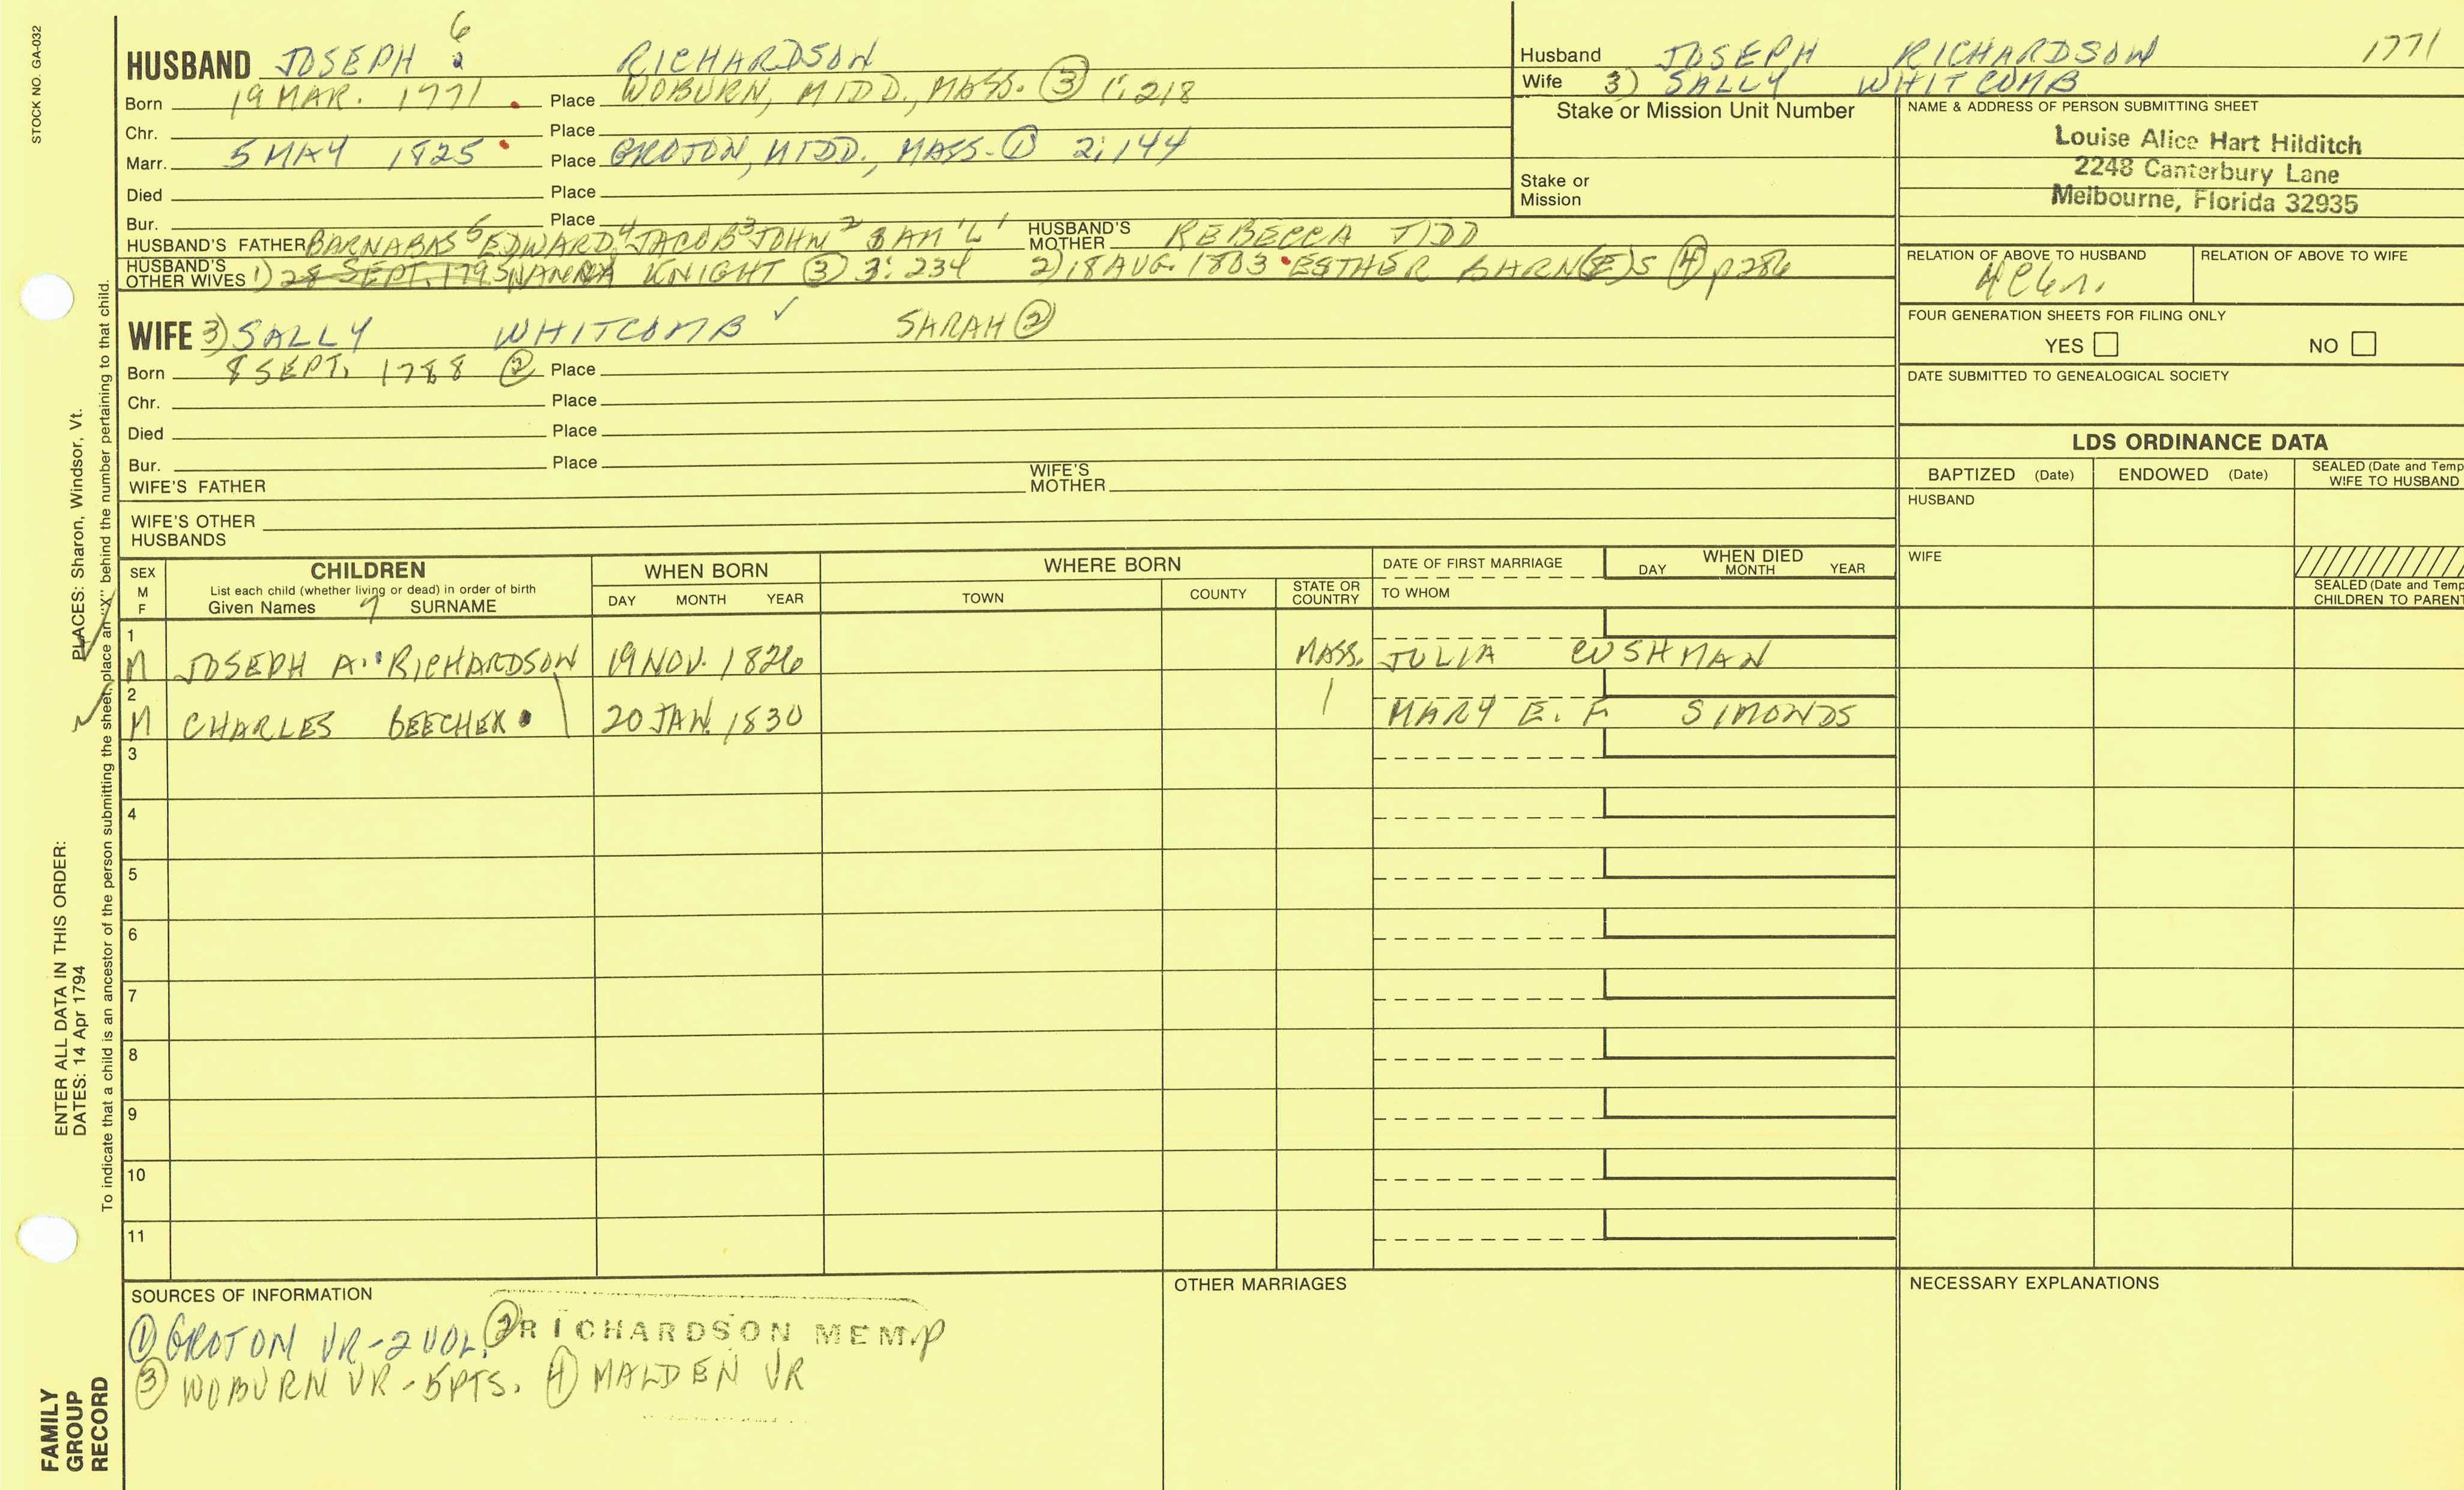 STOCK NO. GA-032
6
HUSBAND JOSEPH 2 RICHARDSON
Born 19 MAR. 1771 Place WOBURN, MIDD., MASS. ③ 1:218
Chr. Place
Marr. 5 MAY 1825 Place GROTON, MIDD., MASS. ① 2:144
Died Place
Bur. Place
HUSBAND'S FATHER BARNABAS 5 EDWARD 4 JACOB 3 JOHN 2 SAM'L 1 HUSBAND'S MOTHER REBECCA TIDD
HUSBAND'S OTHER WIVES 1) 28 SEPT. 1795 KNIGHT ③ 3:234 2) 18 AUG. 1803 ESTHER BARN(E)S ④ p286
WIFE 3) SALLY WHITCOMB ✓ SARAH ②
Born 8 SEPT. 1788 ② Place
Chr. Place
Died Place
Bur. Place
WIFE'S FATHER WIFE'S MOTHER
WIFE'S OTHER HUSBANDS
Husband JOSEPH RICHARDSON 1771
Wife 3) SALLY WHITCOMB
Stake or Mission Unit Number
Stake or Mission
NAME & ADDRESS OF PERSON SUBMITTING SHEET
Louise Alice Hart Hilditch
2248 Canterbury Lane
Melbourne, Florida 32935
RELATION OF ABOVE TO HUSBAND RELATION OF ABOVE TO WIFE
FOUR GENERATION SHEETS FOR FILING ONLY
YES NO
DATE SUBMITTED TO GENEALOGICAL SOCIETY
LDS ORDINANCE DATA
BAPTIZED (Date) ENDOWED (Date) SEALED (Date and Temp
WIFE TO HUSBAND
HUSBAND
WIFE
SEALED (Date and Temp
CHILDREN TO PARENT
SEX M F CHILDREN WHEN BORN WHERE BORN DATE OF FIRST MARRIAGE WHEN DIED
List each child (whether living or dead) in order of birth
Given Names 7 SURNAME DAY MONTH YEAR TOWN COUNTY STATE OR COUNTRY TO WHOM DAY MONTH YEAR
1
M JOSEPH A. RICHARDSON 19 NOV. 1826 MASS. JULIA CUSHMAN
2
M CHARLES BEECHER 20 JAN. 1830 MARY E. F. SIMONDS
3
4
5
6
7
8
9
10
11
SOURCES OF INFORMATION OTHER MARRIAGES NECESSARY EXPLANATIONS
① GROTON VR-2 VOL. ② RICHARDSON MEM. P
③ WOBURN VR-5PTS. ④ MALDEN VR
FAMILY GROUP RECORD
ENTER ALL DATA IN THIS ORDER:
DATES: 14 Apr 1794
PLACES: Sharon, Windsor, Vt.
To indicate that a child is an ancestor of the person submitting the sheet, place an "X" behind the number pertaining to that child.